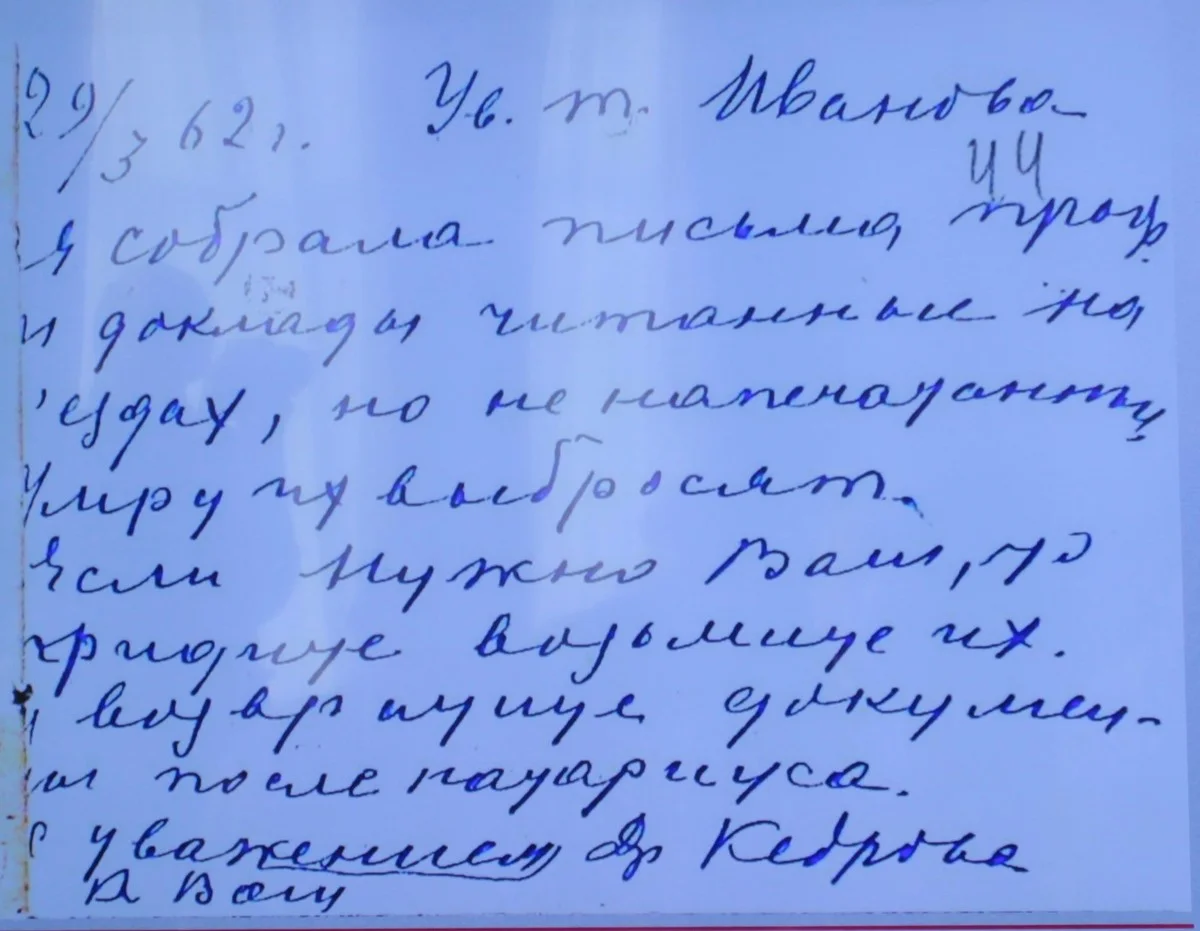 29/3 62 г. Ув. т. Иванова
44
Я собрала письма проф.
и доклады читанные на
'ездах, но не напечатанны
Умру их выбросят.
Если Нужно Вам, то
придите возьмите их.
и возвратите докумен-
ты после натариуса.
С уважением Др Кедрова
к Вам